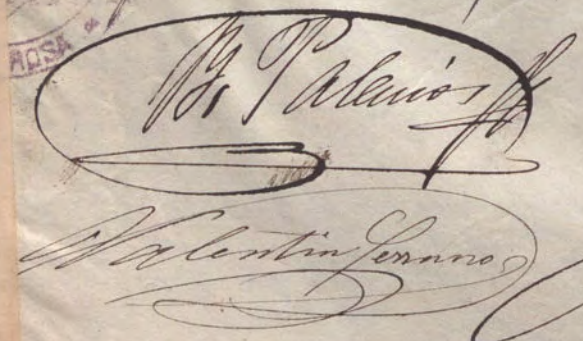 ROSA
B. Palacios
Valentin Serrano